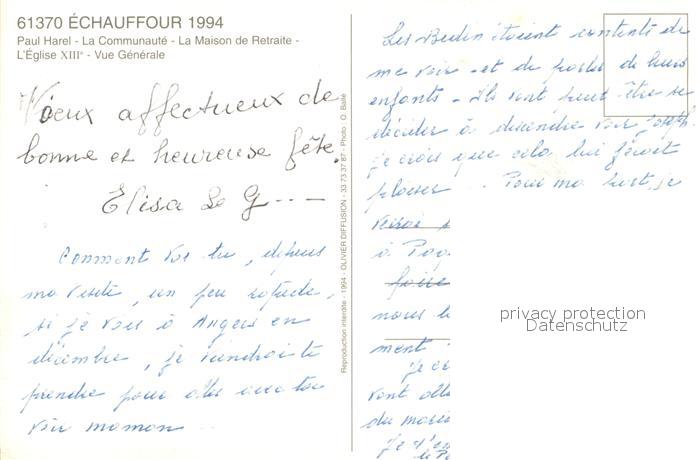 61370 ÉCHAUFFOUR 1994
Paul Harel - La Communauté - La Maison de Retraite -
L'Église XIIIe - Vue Générale
Vœux affectueux de
bonne et heureuse fête.
Elisa Le G---
Comment vas-tu, depuis
ma visite, un peu rapide,
si je vais à Angers en
décembre, je viendrai te
prendre pour aller avec toi
voir maman...
Reproduction interdite - 1994 - OLIVIER DIFFUSION - 33 73 37 87 - Photo : O. Baillé
Les Bedin étaient contents de
me voir - et de parler de leurs
enfants - Ils vont peut-être se
décider à descendre voir
je crois que cela lui ferait
plaisir... Pour ma part, je
verrai
à
foire
nous
ment
Je
vont
du
privacy protection
Datenschutz